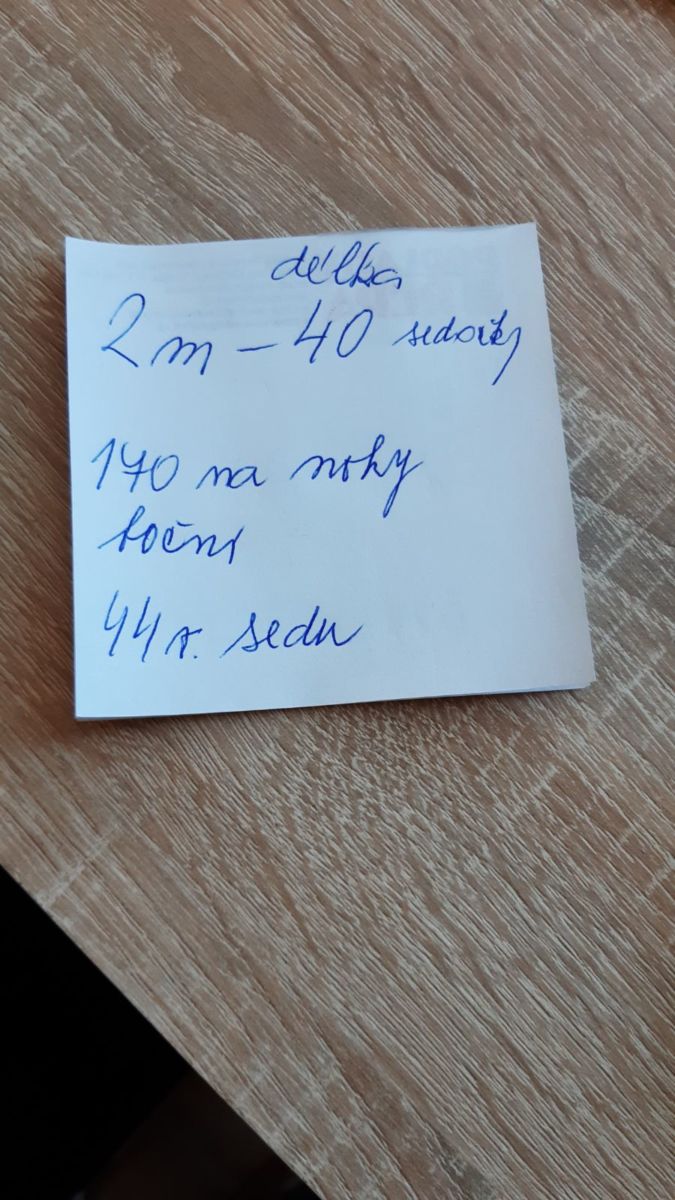 délka
2m – 40 sedačky
170 na nohy
boční
44 v. sedu